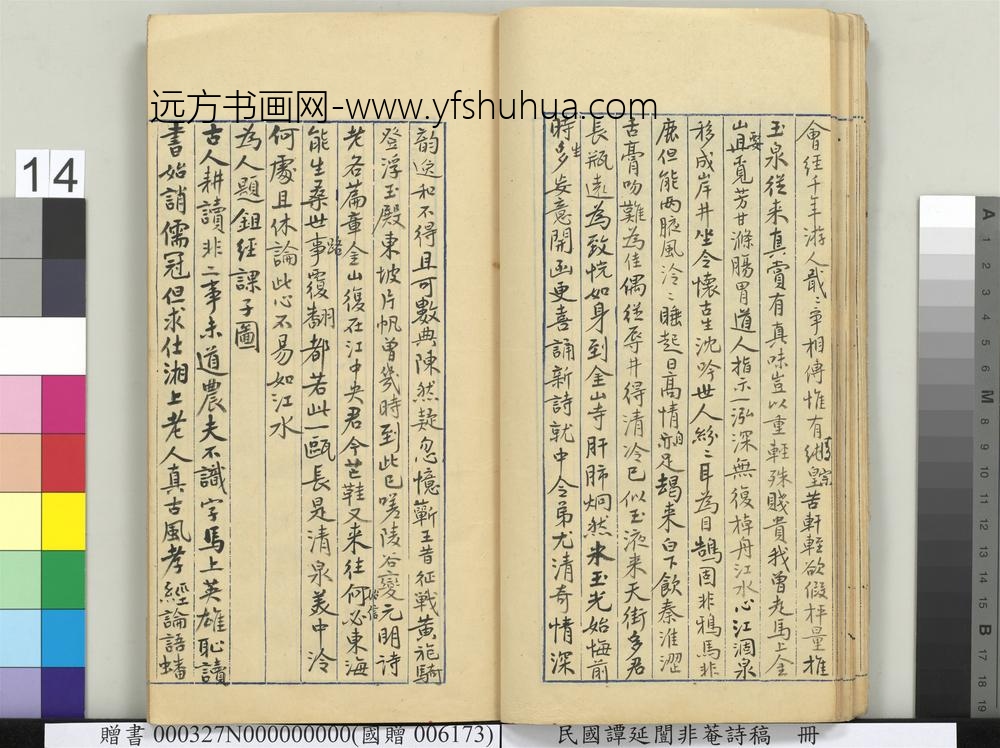 远方书画网-www.yfshuhua.com
會經千年游人戢戢爭相傳惟有純皇苦軒輊欲假枰量推
玉泉從来真賞有真味豈以重輕殊賤貴我曾走馬上金
山要覓芳甘滌腸胃道人指示一泓深無復棹舟江水心江涸泉
移成岸井坐令懷古生沈吟世人紛紛耳為目鵠固非鴉馬非
鹿但能兩腋風泠泠睡起日高情自足朅来白下飲秦淮澀
古膏吻難為佳偶從辱井得清冷已似玉液来天街多君
長瓶遠為致恍如身到金山寺肝肺炯然氷玉光始悔前
時多妄意開函更喜誦新詩就中令弟尤清奇情深
韵逸和不得且可數典陳然疑忽憶蘄王昔征戰黃施騎
登浮玉殿東坡片帆曾幾時到此已嗟陵谷變元明詩
老各篇章金山復在江中央君今芒鞋又来往何必東海
能生桑世事覆翻都若此一甌長是清泉美中泠
何處且休論此心不易如江水
為人題鉏經課子圖
古人耕讀非二事未道農夫不識字馬上英雄恥讀
書始誚儒冠但求仕湘上老人真古風孝經論語蟠
14
贈書 000327N000000000(國贈 006173)
民國譚延闓非菴詩稿 冊
A 1 2 3 4 5 6 M 8 9 10 11 12 13 14 15 B 17 18 19